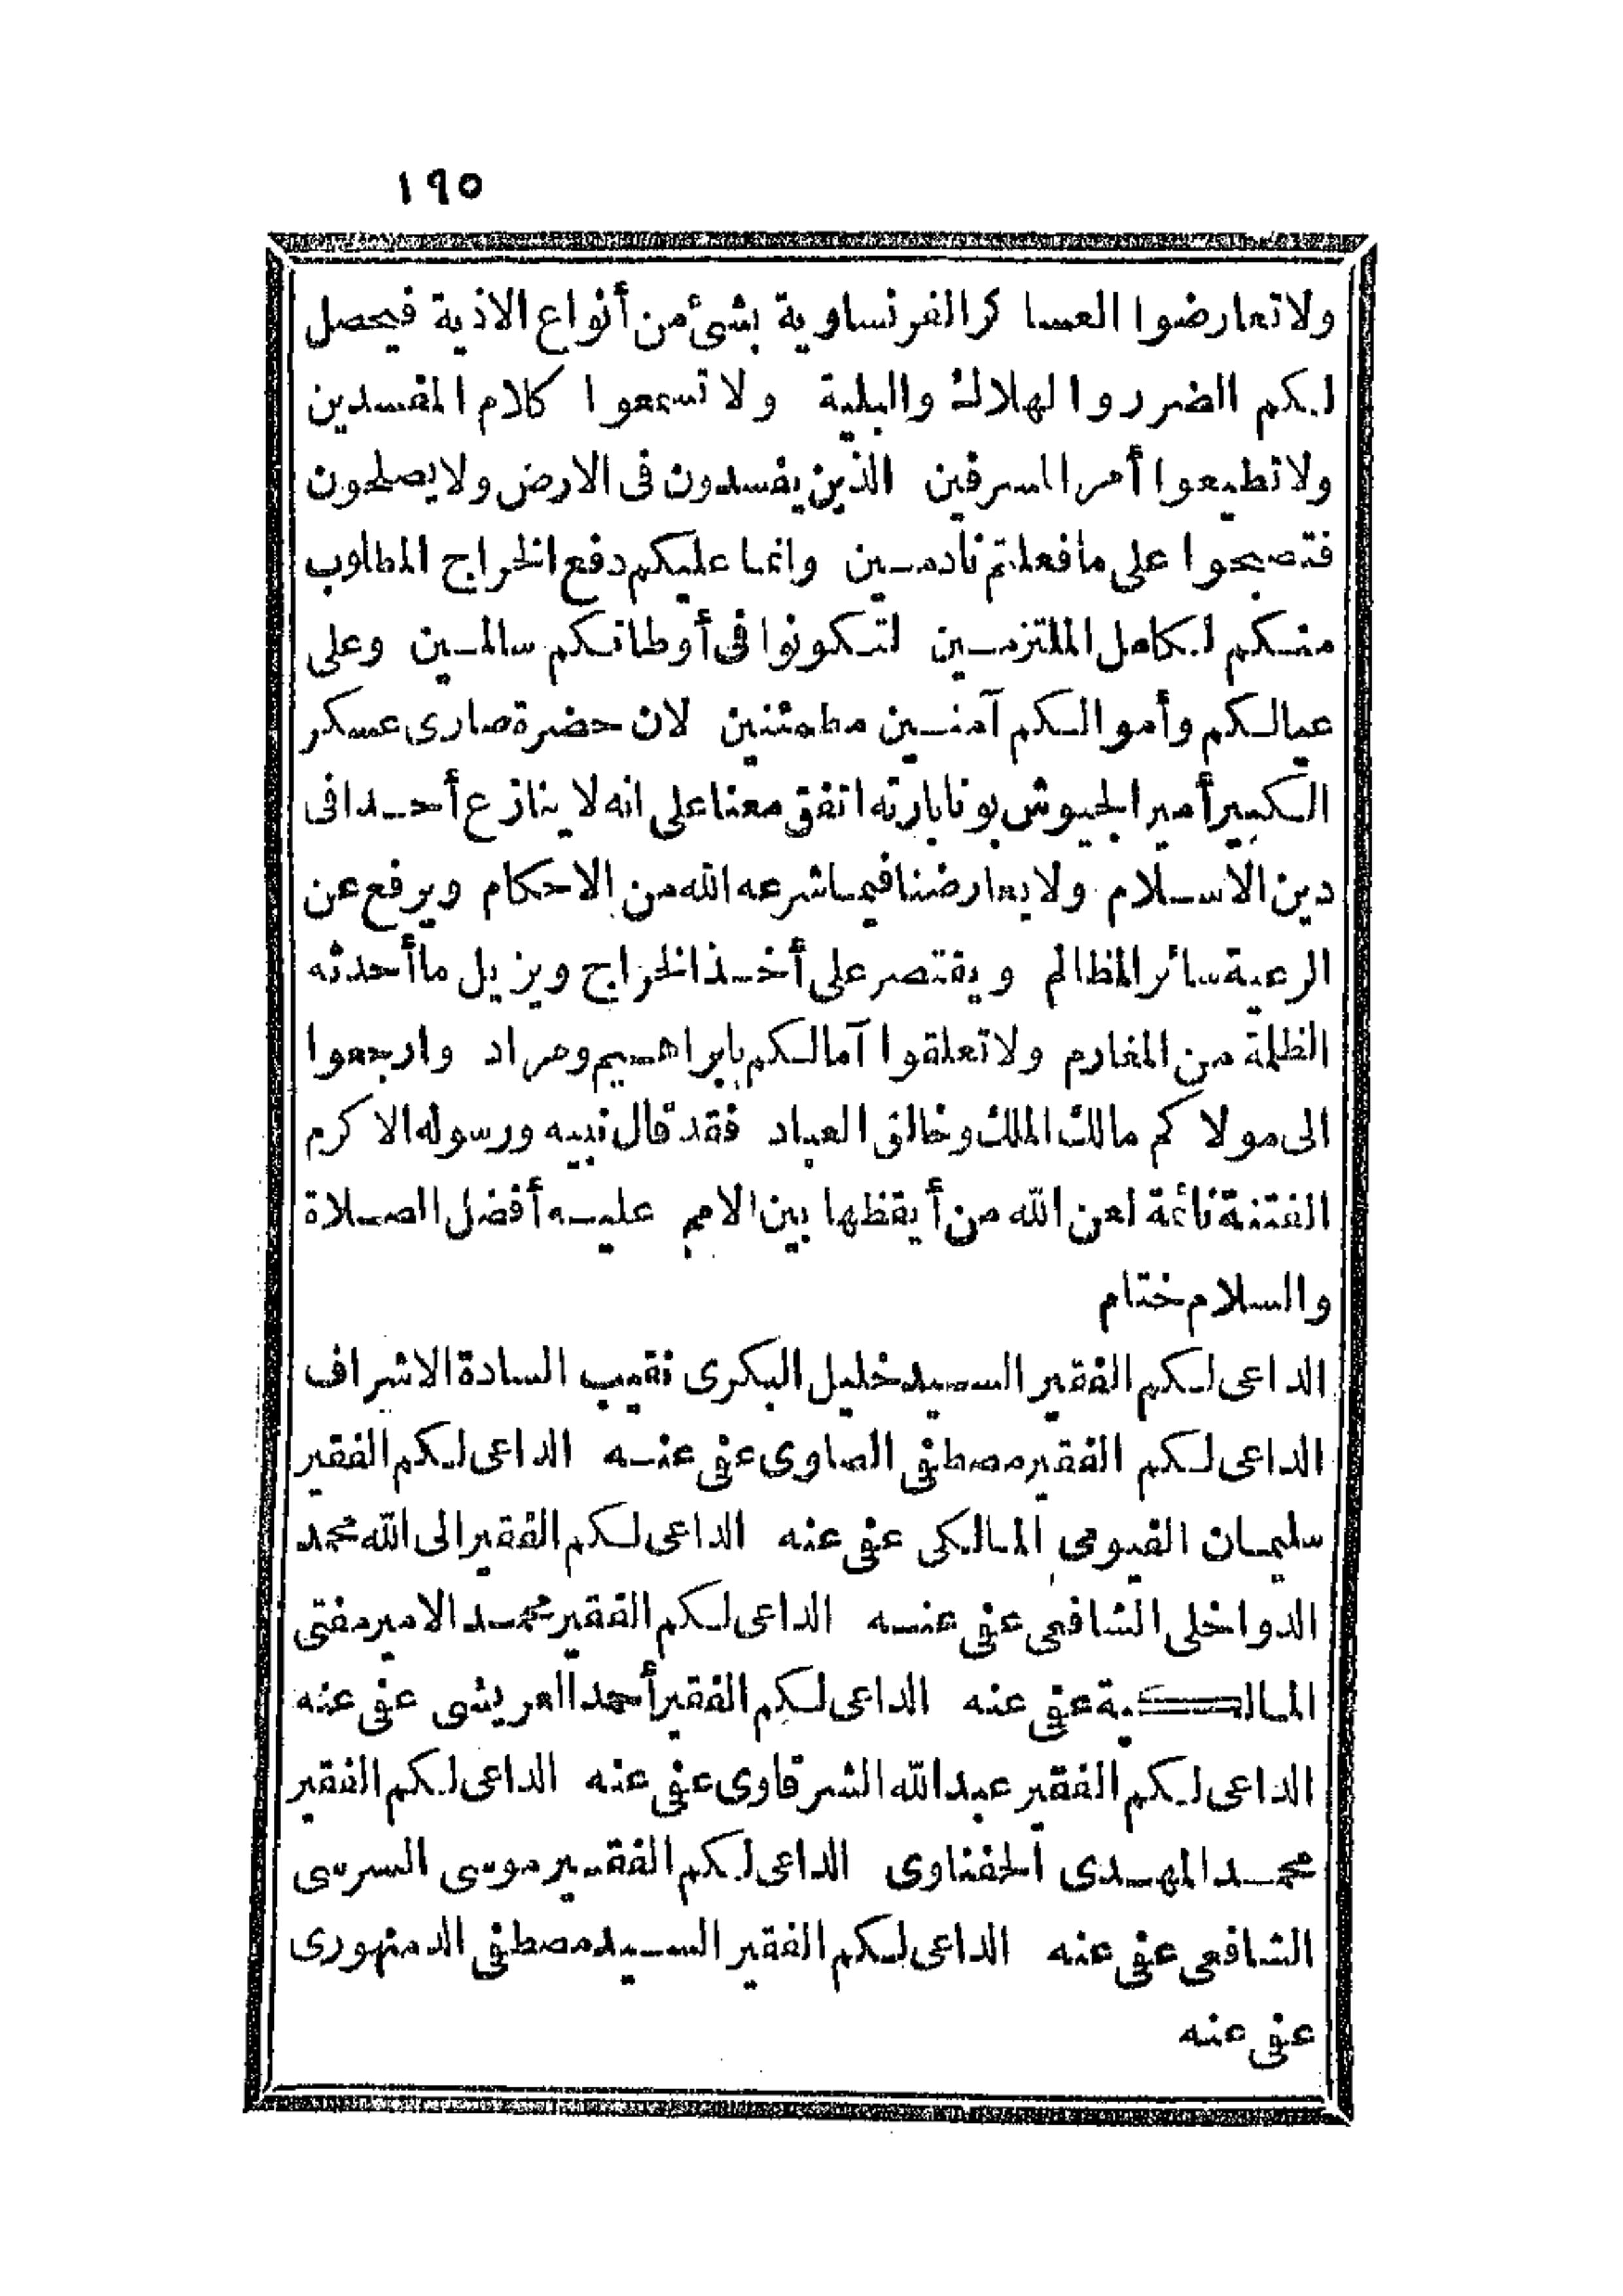 ١٩٥
ولا تعارضوا العساكر الفرنساوية بشئ من أنواع الاذية فيحصل
لكم الضرر والهلاك والبلية ولا تسمعوا كلام المفسدين
ولا تطيعوا أمر المسرفين الذين يفسدون فى الارض ولا يصلحون
فتصبحوا على ما فعلتم نادمين وانما عليكم دفع الخراج المطلوب
منكم لكامل الملتزمين لتكونوا فى أوطانكم سالمين وعلى
عيالكم وأموالكم آمنين مطمئنين لان حضرة صارى عسكر
الكبير أمير الجيوش بونابارته اتفق معنا على انه لا ينازع أحدا فى
دين الاسلام ولا يعارضنا فيما شرعه الله من الاحكام ويرفع عن
الرعية سائر المظالم ويقتصر على أخذ الخراج ويزيل ما أحدثه
الظلمة من المغارم ولا تعلقوا آمالكم بابراهيم ومراد وارجعوا
الى مولاكم مالك الملك وخالق العباد فقد قال نبيه ورسوله الاكرم
الفتنة نائمة لعن الله من أيقظها بين الامم عليه أفضل الصلاة
والسلام ختام
الداعى لكم الفقير السيد خليل البكرى نقيب السادة الاشراف
الداعى لكم الفقير مصطفى الصاوى عفى عنه الداعى لكم الفقير
سليمان الفيومى المالكى عفى عنه الداعى لكم الفقير الى الله محمد
الدواخلى الشافعى عفى عنه الداعى لكم الفقير محمد الامير مفتى
المالكية عفى عنه الداعى لكم الفقير أحمد العريشى عفى عنه
الداعى لكم الفقير عبد الله الشرقاوى عفى عنه الداعى لكم الفقير
محمد المهدى الحفناوى الداعى لكم الفقير موسى السرسى
الشافعى عفى عنه الداعى لكم الفقير السيد مصطفى الدمنهورى
عفى عنه